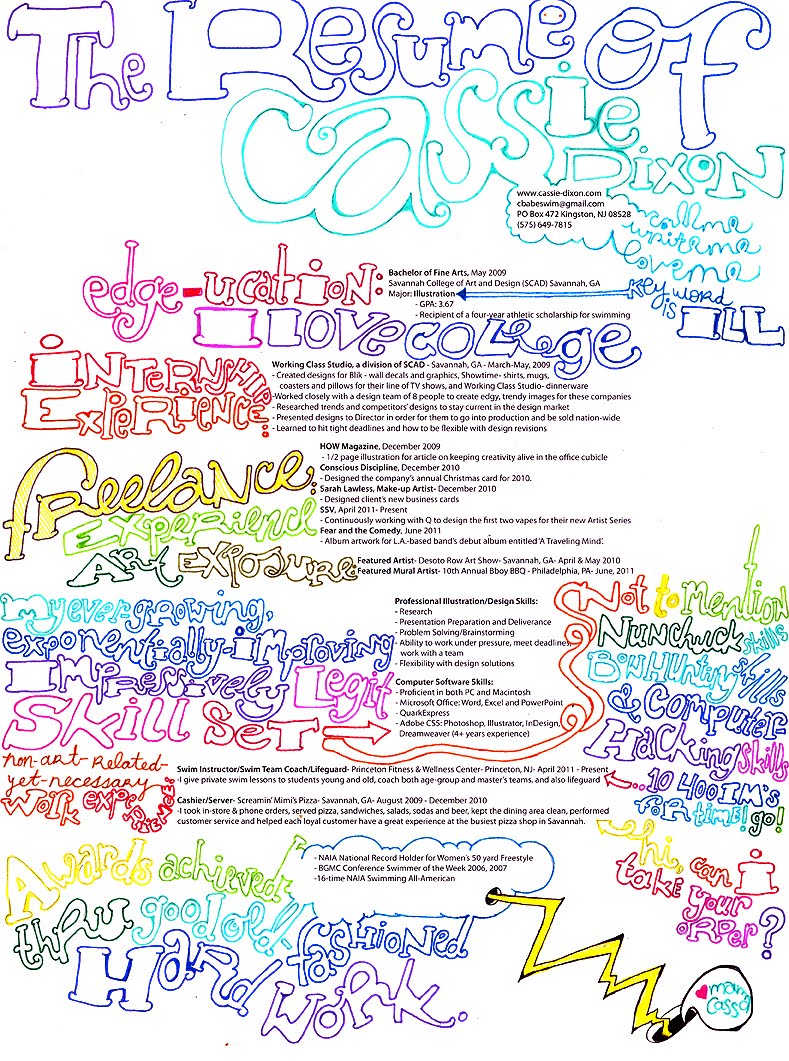 The Resume Of
Cassie
Dixon
www.cassie-dixon.com
cbabeswim@gmail.com
PO Box 472 Kingston, NJ 08528
(575) 649-7815
call me
write me
love me
edge-ucation:
Bachelor of Fine Arts, May 2009
Savannah College of Art and Design (SCAD) Savannah, GA
Major: Illustration
- GPA: 3.67
- Recipient of a four-year athletic scholarship for swimming
key word
is ILL
I LOVE COLLege
INTERNSHIP
EXPERIENCE:
Working Class Studio, a division of SCAD - Savannah, GA - March-May, 2009
- Created designs for Blik - wall decals and graphics, Showtime- shirts, mugs,
coasters and pillows for their line of TV shows, and Working Class Studio- dinnerware
-Worked closely with a design team of 8 people to create edgy, trendy images for these companies
- Researched trends and competitors' designs to stay current in the design market
- Presented designs to Director in order for them to go into production and be sold nation-wide
- Learned to hit tight deadlines and how to be flexible with design revisions
freelance
Experience:
HOW Magazine, December 2009
- 1/2 page illustration for article on keeping creativity alive in the office cubicle
Conscious Discipline, December 2010
- Designed the company's annual Christmas card for 2010.
Sarah Lawless, Make-up Artist- December 2010
- Designed client's new business cards
SSV, April 2011- Present
- Continuously working with Q to design the first two vapes for their new Artist Series
Fear and the Comedy, June 2011
- Album artwork for L.A.-based band's debut album entitled 'A Traveling Mind'.
Art Exposure:
Featured Artist- Desoto Row Art Show- Savannah, GA- April & May 2010
Featured Mural Artist- 10th Annual Bboy BBQ - Philadelphia, PA- June, 2011
my ever-growing,
exponentially-improving
IMPRESSIVELY Legit
Skill Set
Professional Illustration/Design Skills:
- Research
- Presentation Preparation and Deliverance
- Problem Solving/Brainstorming
-Ability to work under pressure, meet deadlines,
work with a team
- Flexibility with design solutions
Computer Software Skills:
- Proficient in both PC and Macintosh
- Microsoft Office: Word, Excel and PowerPoint
- QuarkExpress
- Adobe CS5: Photoshop, Illustrator, InDesign,
Dreamweaver (4+ years experience)
Not to Mention
Nunchuck skills
BowHunting skills
& Computer
Hacking skills
non-art-related-
yet-necessary
work experience:
Swim Instructor/Swim Team Coach/Lifeguard- Princeton Fitness & Wellness Center- Princeton, NJ- April 2011 - Present
-I give private swim lessons to students young and old, coach both age-group and master's teams, and also lifeguard
...10 400 IM's
for time! go!
Cashier/Server- Screamin' Mimi's Pizza- Savannah, GA- August 2009 - December 2010
-I took in-store & phone orders, served pizza, sandwiches, salads, sodas and beer, kept the dining area clean, performed
customer service and helped each loyal customer have a great experience at the busiest pizza shop in Savannah.
hi, can I
take your
order?
Awards achieved
thru good old-fashioned
Hard Work.
- NAIA National Record Holder for Women's 50 yard Freestyle
- BGMC Conference Swimmer of the Week 2006, 2007
-16-time NAIA Swimming All-American
mama
cass